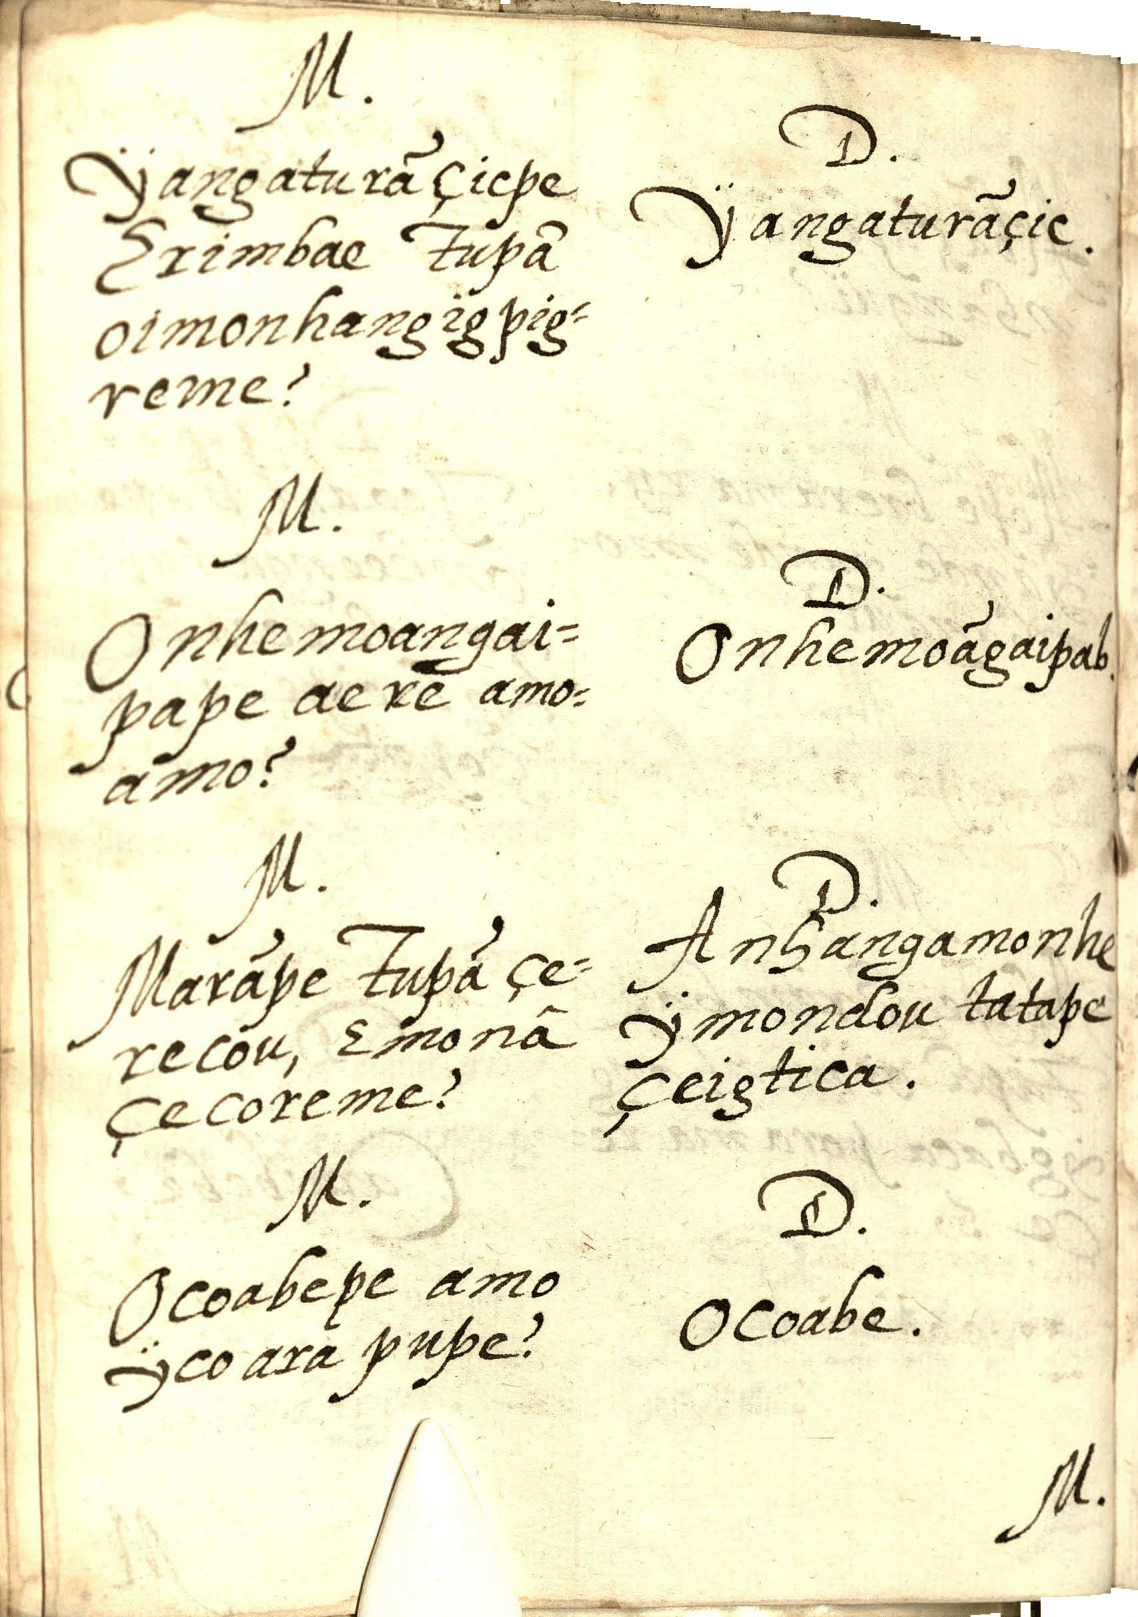 M.
Ÿangaturãçicpe
Erimbae Tupã
oimonhangïgpig=
reme?
D.
Ÿangaturãçic.
M.
Onhemoangai=
pape aerẽ amo=
amo?
D.
Onhemoãgaipab.
M.
Marãpe Tupã çe=
recou, Emonã
çecoreme?
D.
Anhangamonhe
ÿmondou tatape
çeigtica.
M.
Ocoabepe amo
ÿco ara pupe?
D.
Ocoabe.
M.